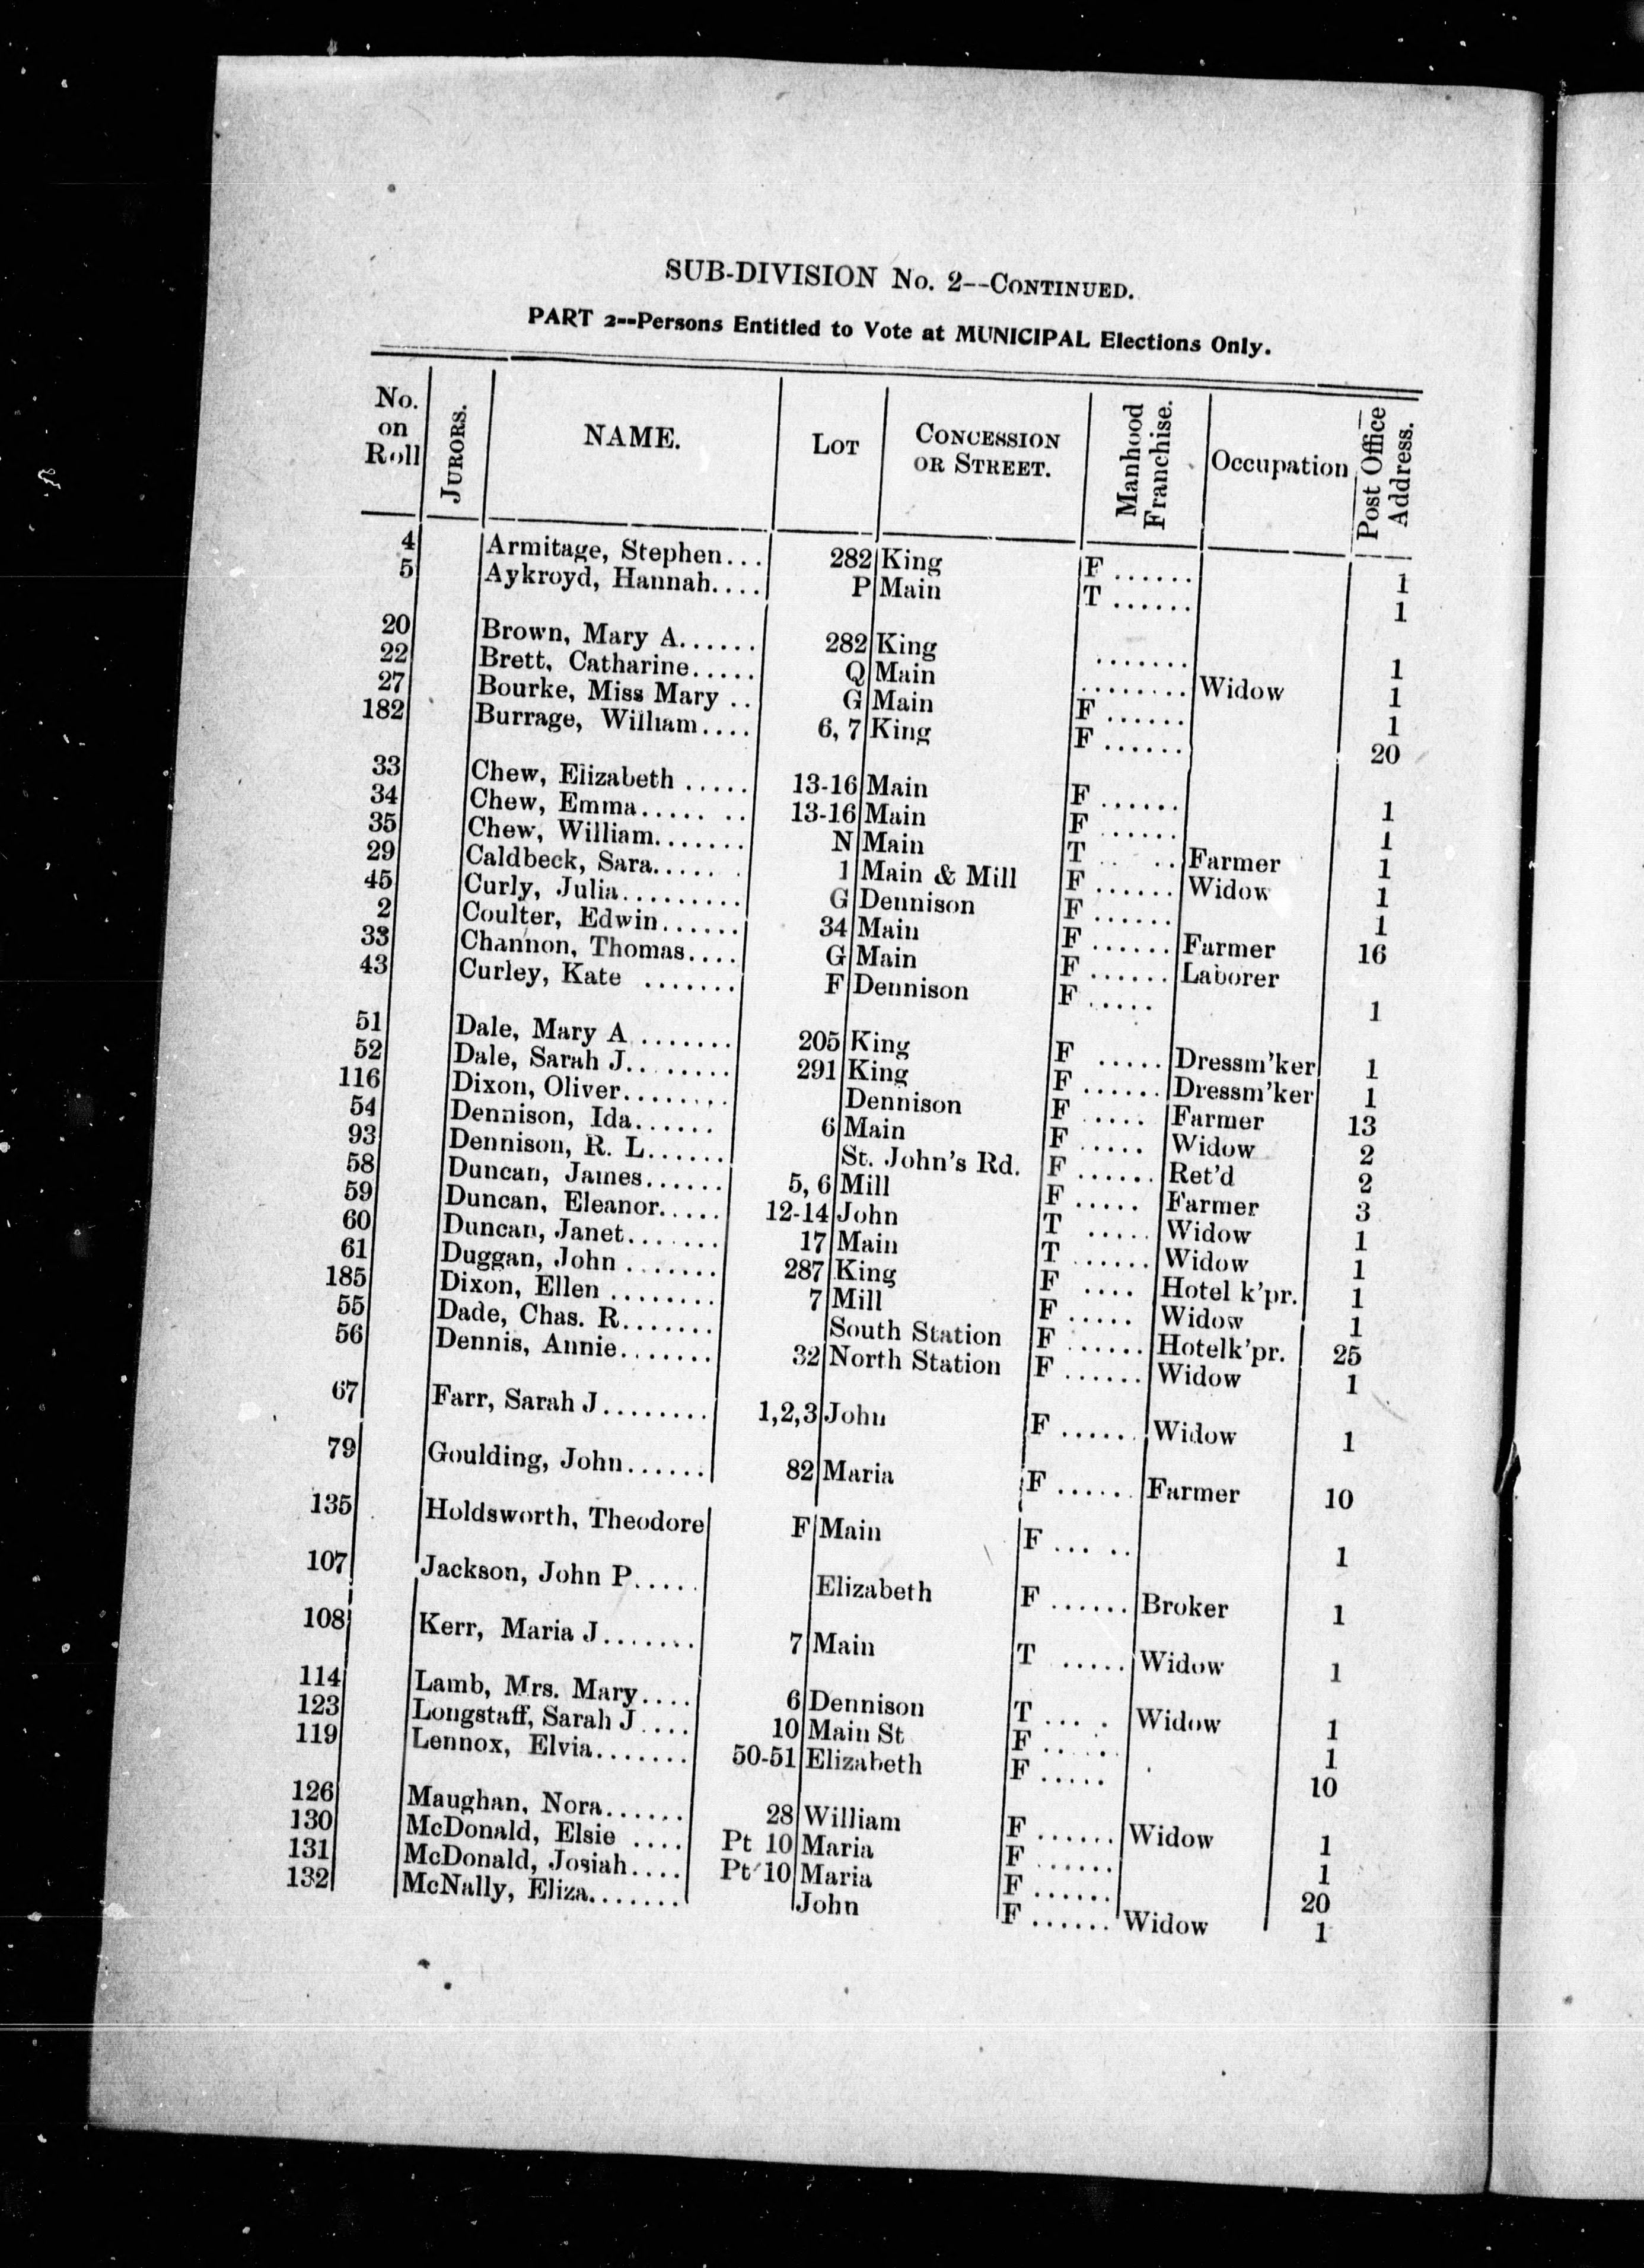 SUB-DIVISION No. 2--CONTINUED.
PART 2--Persons Entitled to Vote at MUNICIPAL Elections Only.
No. on Roll JURORS. NAME. LOT CONCESSION OR STREET. Manhood Franchise. Occupation Post Office Address.
4 Armitage, Stephen... 282 King F ...... 1
5 Aykroyd, Hannah.... P Main T ...... 1
20 Brown, Mary A...... 282 King ....... 1
22 Brett, Catharine..... Q Main ........ Widow 1
27 Bourke, Miss Mary .. G Main F ...... 1
182 Burrage, William.... 6, 7 King F ...... 20
33 Chew, Elizabeth ..... 13-16 Main F ...... 1
34 Chew, Emma..... .. 13-16 Main F ...... 1
35 Chew, William....... N Main T .. .. Farmer 1
29 Caldbeck, Sara..... . 1 Main & Mill F ...... Widow 1
45 Curly, Julia......... G Dennison F ...... 1
2 Coulter, Edwin...... 34 Main F ...... Farmer 16
33 Channon, Thomas.... G Main F ...... Laborer
43 Curley, Kate ....... F Dennison F ..... 1
51 Dale, Mary A ....... 205 King F ..... Dressm'ker 1
52 Dale, Sarah J........ 291 King F ...... Dressm'ker 1
116 Dixon, Oliver........ Dennison F ..... Farmer 13
54 Dennison, Ida...... 6 Main F ..... Widow 2
93 Dennison, R. L...... St. John's Rd. F ...... Ret'd 2
58 Duncan, James...... 5, 6 Mill F ..... Farmer 3
59 Duncan, Eleanor..... 12-14 John T ..... Widow 1
60 Duncan, Janet....... 17 Main T ...... Widow 1
61 Duggan, John ....... 287 King F .... Hotel k'pr. 1
185 Dixon, Ellen ........ 7 Mill F ..... Widow 1
55 Dade, Chas. R....... South Station F ...... Hotelk'pr. 25
56 Dennis, Annie....... 32 North Station F ...... Widow 1
67 Farr, Sarah J........ 1,2,3 John F ...... Widow 1
79 Goulding, John...... 82 Maria F ...... Farmer 10
135 Holdsworth, Theodore F Main F ... .. 1
107 Jackson, John P..... Elizabeth F ...... Broker 1
108 Kerr, Maria J....... 7 Main T ..... Widow 1
114 Lamb, Mrs. Mary.... 6 Dennison T ... . Widow 1
123 Longstaff, Sarah J .... 10 Main St F ..... 1
119 Lennox, Elvia....... 50-51 Elizabeth F ..... 10
126 Maughan, Nora...... 28 William F ...... Widow 1
130 McDonald, Elsie .... Pt 10 Maria F ...... 1
131 McDonald, Josiah.... Pt 10 Maria F ...... 20
132 McNally, Eliza....... John F ...... Widow 1